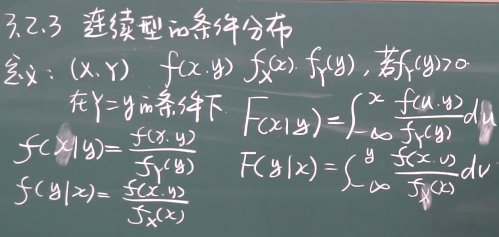 3.2.3 连续型的条件分布
定义: (X.Y) f(x.y) f_X(x). f_Y(y), 若f_Y(y)>0.
在Y=y的条件下. F(x|y)=∫_{-∞}^{x} \frac{f(u.y)}{f_Y(y)}du
f(x|y)=\frac{f(x.y)}{f_Y(y)} F(y|x)=∫_{-∞}^{y} \frac{f(x.v)}{f_X(x)}dv
f(y|x)=\frac{f(x.y)}{f_X(x)}